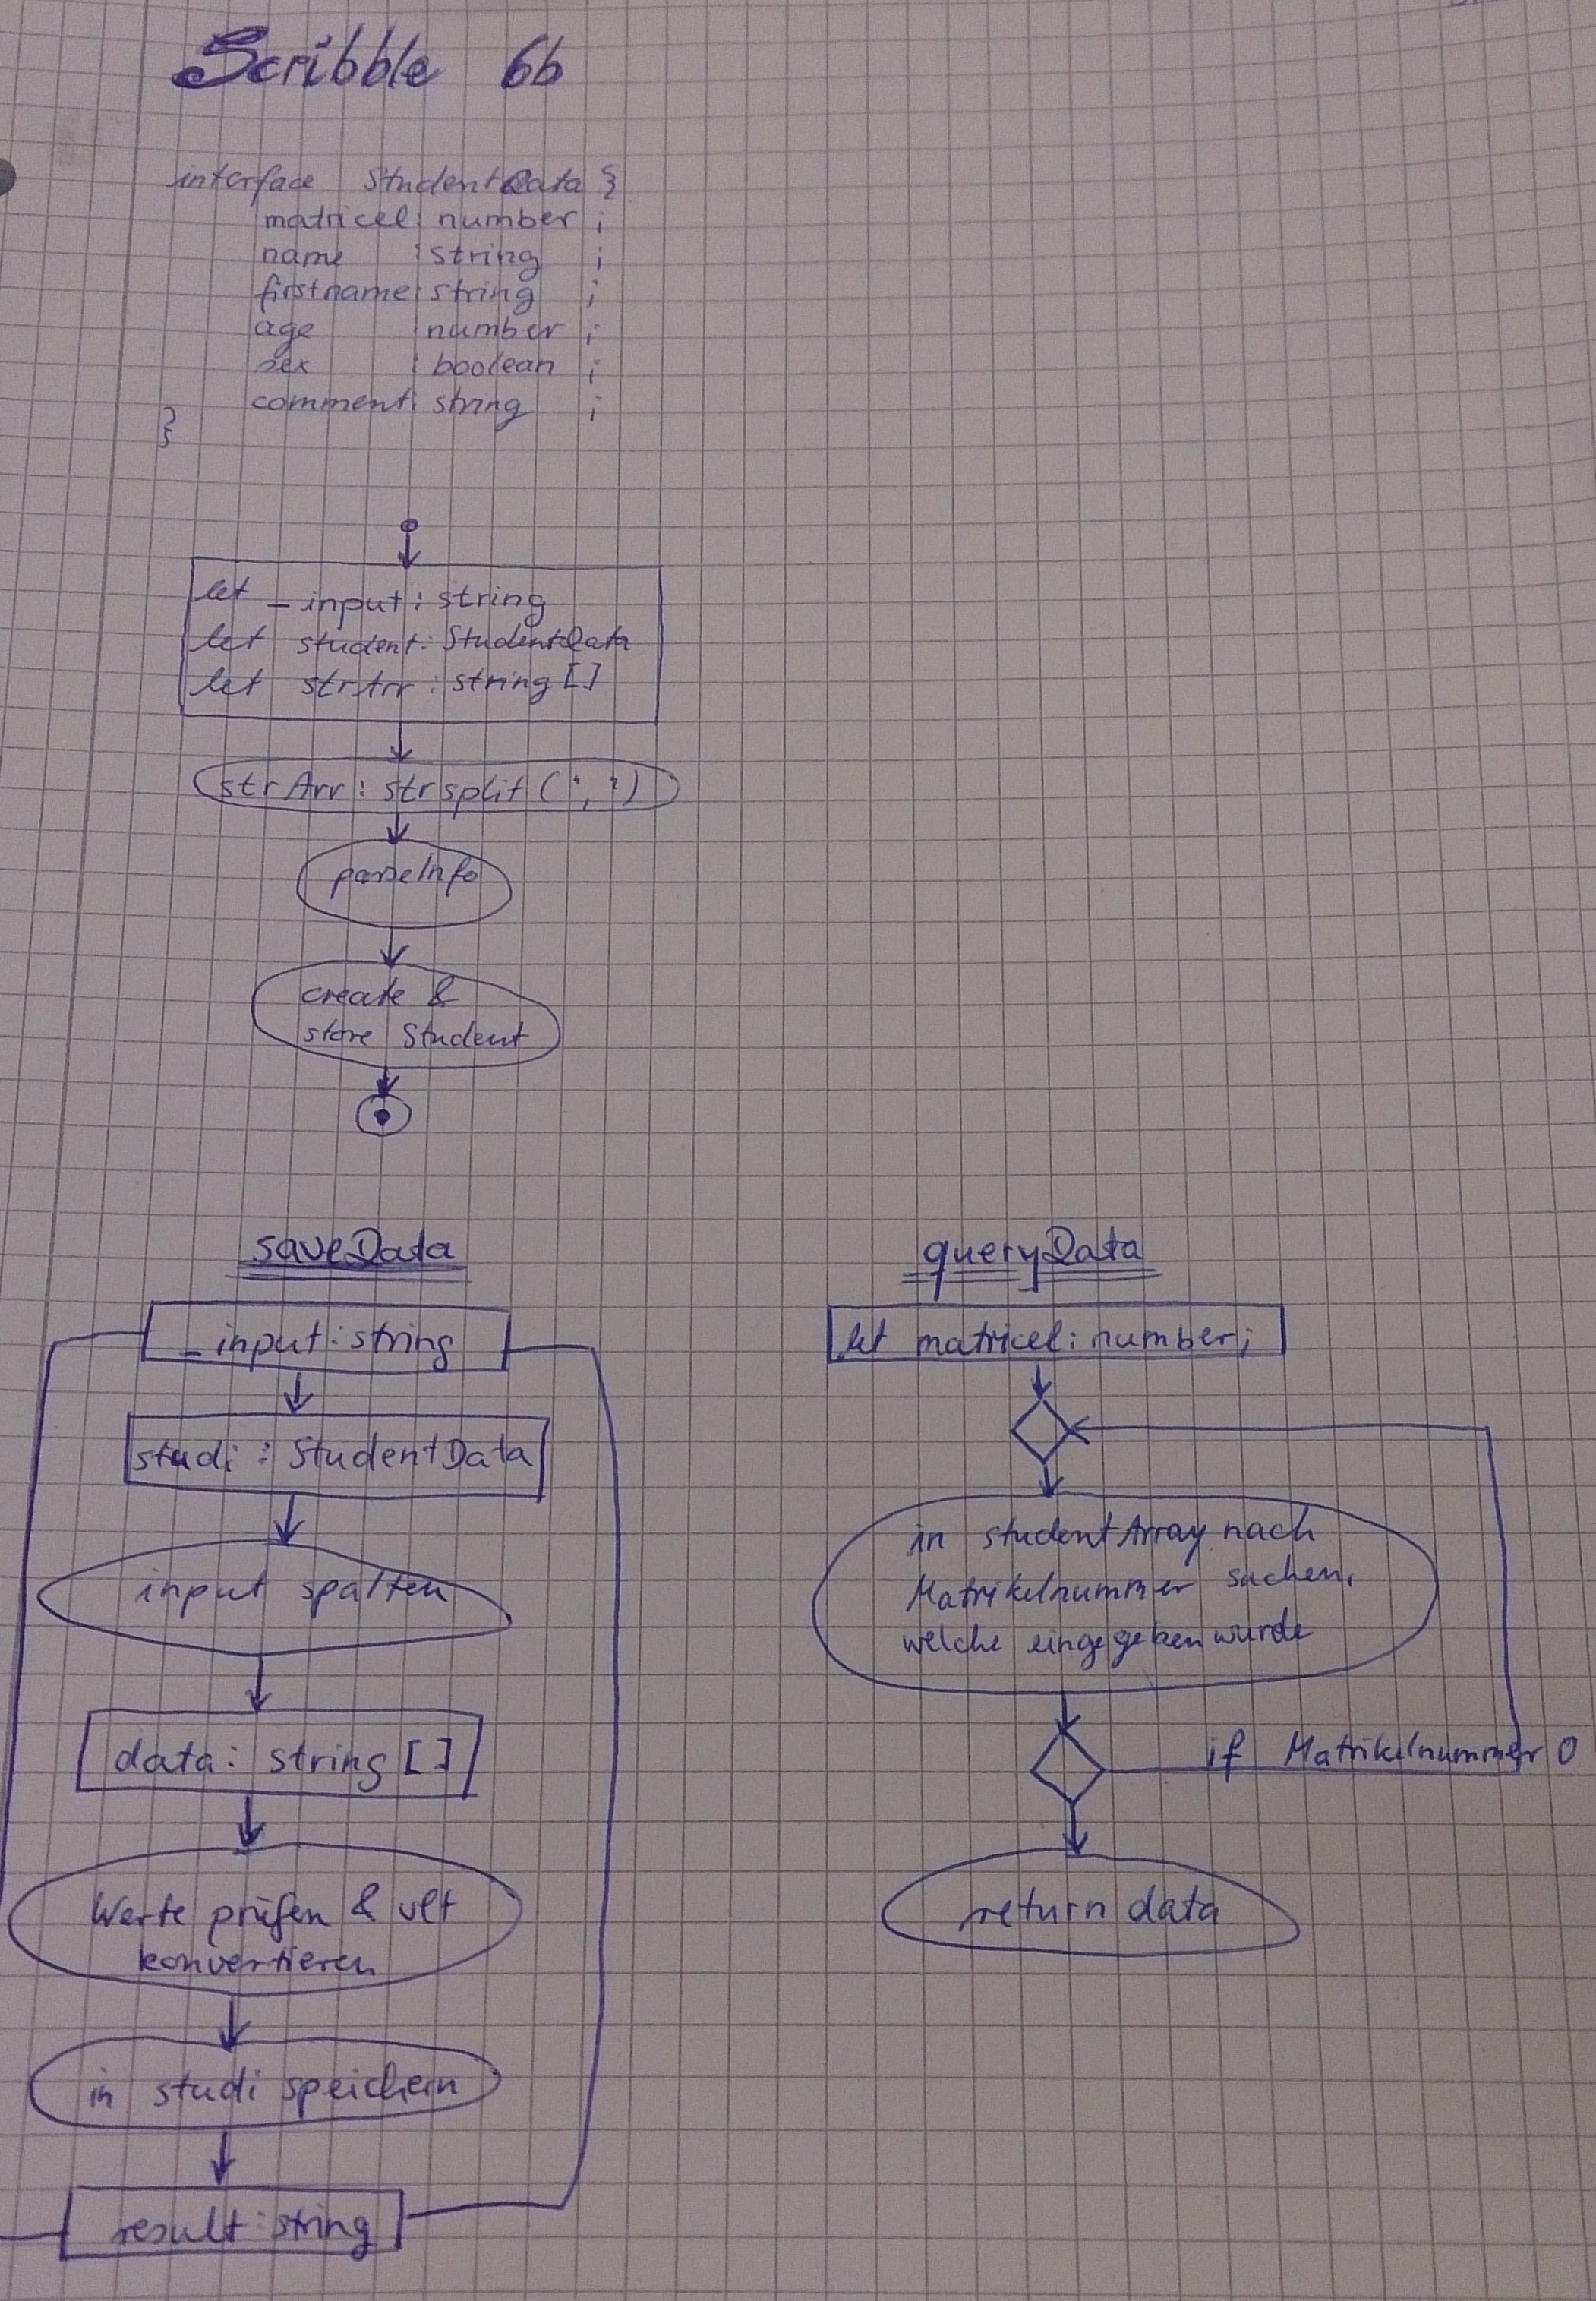 Scribble 6b
interface StudentData {
matricel: number ;
name : string ;
firstname: string ;
age : number ;
sex : boolean ;
comment: string ;
}
let _input : string
let student: StudentData
let strArr : string[]
strArr : strsplit(',')
parseInfo
create &
store Student
saveData
_input : string
studi : StudentData
input spalten
data: string[]
Werte prüfen & vlt
konvertieren
in studi speichern
result : string
queryData
let matricel : number;
in studentArray nach
Matrikelnummer suchen,
welche eingegeben wurde
if Matrikelnummer 0
return data